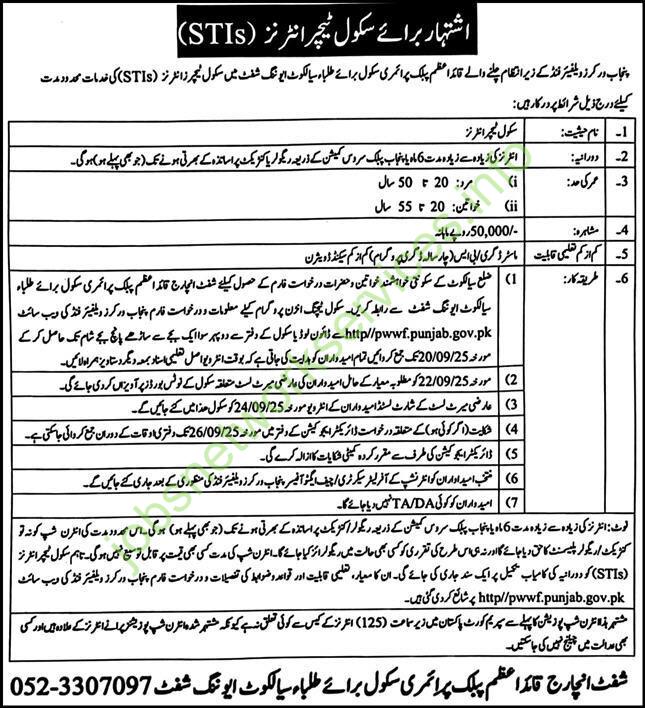 اشتہار برائے سکول ٹیچر انٹرنز (STIs)
پنجاب ورکرز ویلفیئر فنڈ کے زیر انتظام چلنے والے قائد اعظم پبلک پرائمری سکول برائے طلباء سیالکوٹ ایوننگ شفٹ میں سکول ٹیچرز انٹرنز (STIs) کی خدمات محدود مدت
کیلئے درج ذیل شرائط پر درکار ہیں:
1۔ نام حیثیت: سکول ٹیچر انٹرنز
2۔ دورانیہ: انٹرنز کی زیادہ سے زیادہ مدت 6 ماہ یا پنجاب پبلک سروس کمیشن کے ذریعہ ریگولر یا کنٹریکٹ پر اساتذہ کے بھرتی ہونے تک (جو بھی پہلے ہو) ہوگی۔
3۔ عمر کی حد: (i مرد: 20 تا 50 سال
(ii خواتین: 20 تا 55 سال
4۔ مشاہرہ: 50,000/- روپے ماہانہ
5۔ کم از کم تعلیمی قابلیت ماسٹر ڈگری/بی ایس (چار سالہ ڈگری پروگرام) کم از کم سیکنڈ ڈویژن
6۔ طریقہ کار: (1 ضلع سیالکوٹ کے سکونتی خواہشمند خواتین و حضرات درخواست فارم کے حصول کیلئے شفٹ انچارج قائد اعظم پبلک پرائمری سکول برائے طلباء
سیالکوٹ ایوننگ شفٹ سے رابطہ کریں۔ سکول ٹیچنگ انٹرن پروگرام کیلئے معلومات و درخواست فارم پنجاب ورکرز ویلفیئر فنڈ کی ویب سائٹ
http//pwwf.punjab.gov.pk سے ڈاؤن لوڈ یا سکول کے دفتر سے دوپہر سوا ایک بجے سے ساڑھے پانچ بجے شام تک حاصل کر کے
مورخہ 20/09/25 تک جمع کروائیں تمام امیدواران کو ہدایت کی جاتی ہے کہ بوقت انٹرویو اصل تعلیمی اسناد بمعہ دیگر دستاویز ہمراہ لائیں۔
(2 مورخہ 22/09/25 کو مطلوبہ معیار کے حامل امیدواران کی عارضی میرٹ لسٹ متعلقہ سکول کے نوٹس بورڈز پر آویزاں کر دی جائے گی۔
(3 عارضی میرٹ لسٹ کے شارٹ لسٹڈ امیدواران کے انٹرویو مورخہ 24/09/25 کو سکول ھذا میں کئے جائیں گے۔
(4 شکایت (اگر کوئی ہو) کے متعلقہ درخواست ڈائریکٹر ایجوکیشن کے دفتر میں مورخہ 26/09/25 تک دفتری اوقات کے دوران جمع کروائی جاسکتی ہے۔
(5 ڈائریکٹر ایجوکیشن کی طرف سے مقرر کردہ کمیٹی شکایات کا ازالہ کرے گی۔
(6 منتخب امیدواران کو انٹرنشپ کے آفر لیٹر سیکرٹری/چیف ایگزیکٹو آفیسر پنجاب ورکرز ویلفیئر فنڈ کی منظوری کے بعد جاری کئے جائیں گے۔
(7 امیدواران کو کوئی TA/DA نہیں دیا جائے گا۔
نوٹ: انٹرنز کی زیادہ سے زیادہ مدت 6 ماہ یا پنجاب پبلک سروس کمیشن کے ذریعہ ریگولر/کنٹریکٹ پر اساتذہ کے بھرتی ہونے تک (جو بھی پہلے ہو) ہوگی۔ اس محدود مدت کی انٹرن شپ کو نہ تو
کنٹریکٹ/ریگولر پلیسمنٹ کا حق دیا جائے گا اور نہ ہی اس طرح کی تقرری کو کسی بھی حالت میں ریگولرائز کیا جائے گا۔ انٹرن شپ کی مدت کسی بھی قیمت پر قابل توسیع نہیں ہوگی۔ تاہم سکول ٹیچر انٹرنز
(STIs) کو دورانیہ کی کامیاب تکمیل پر ایک سند جاری کی جائے گی۔ ان کا معیار، تعلیمی قابلیت اور قواعد و ضوابط کی تفصیلات و درخواست فارم پنجاب ورکرز ویلفیئر فنڈ کی ویب سائٹ
http//pwwf.punjab.gov.pk پر شائع کر دی گئی ہیں۔
مشتہر ہذا انٹرن شپ پوزیشن کا پہلے سے سپریم کورٹ پاکستان میں زیر سماعت (125) انٹرنز کے کیس سے کوئی تعلق نہ ہے کیونکہ مشتہر شدہ انٹرن شپ پوزیشنز پرانے انٹرنز کے علاوہ ہیں اور کسی
بھی عدالت میں چیلنج نہیں کی جاسکتیں۔
شفٹ انچارج قائد اعظم پبلک پرائمری سکول برائے طلباء سیالکوٹ ایوننگ شفٹ 052-3307097
jobsnetworkservices.info